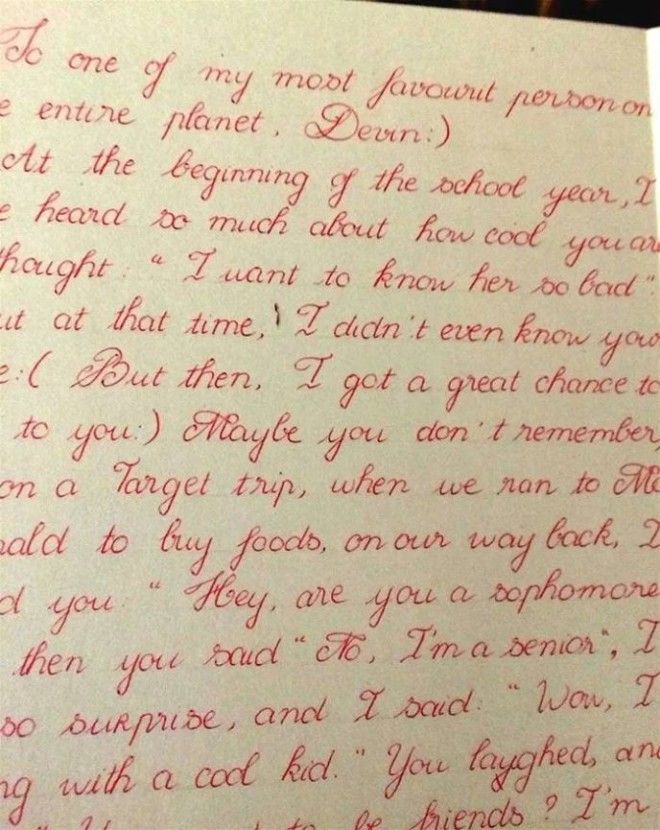 To one of my most favourit person on
e entire planet. Devin:)
At the beginning of the school year, I
e heard so much about how cool you are
hought: "I want to know her so bad".
ut at that time, I didn't even know you
e:( But then, I got a great chance to
to you:) Maybe you don't remember,
on a Target trip, when we ran to Mc
nald to buy foods, on our way back, I
d you: "Hey, are you a sophomore
then you said "No, I'm a senior", I
so surprise, and I said: "Wow, I
ng with a cool kid." You layghed, and
to be friends? I'm